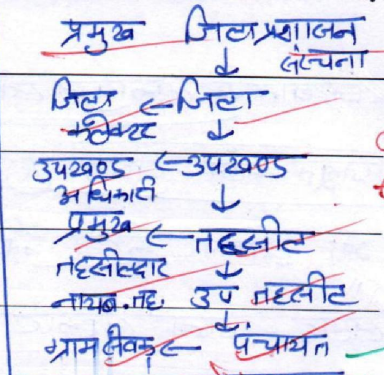 प्रमुख जिला प्रशासन
↓ संरचना
जिला ← जिला
कलेक्टर ↓
उपखण्ड ← उपखण्ड
अधिकारी ↓
प्रमुख ← तहसील
तहसीलदार ↓
नायब. तह. उप तहसील
↓
ग्राम सेवक ← पंचायत